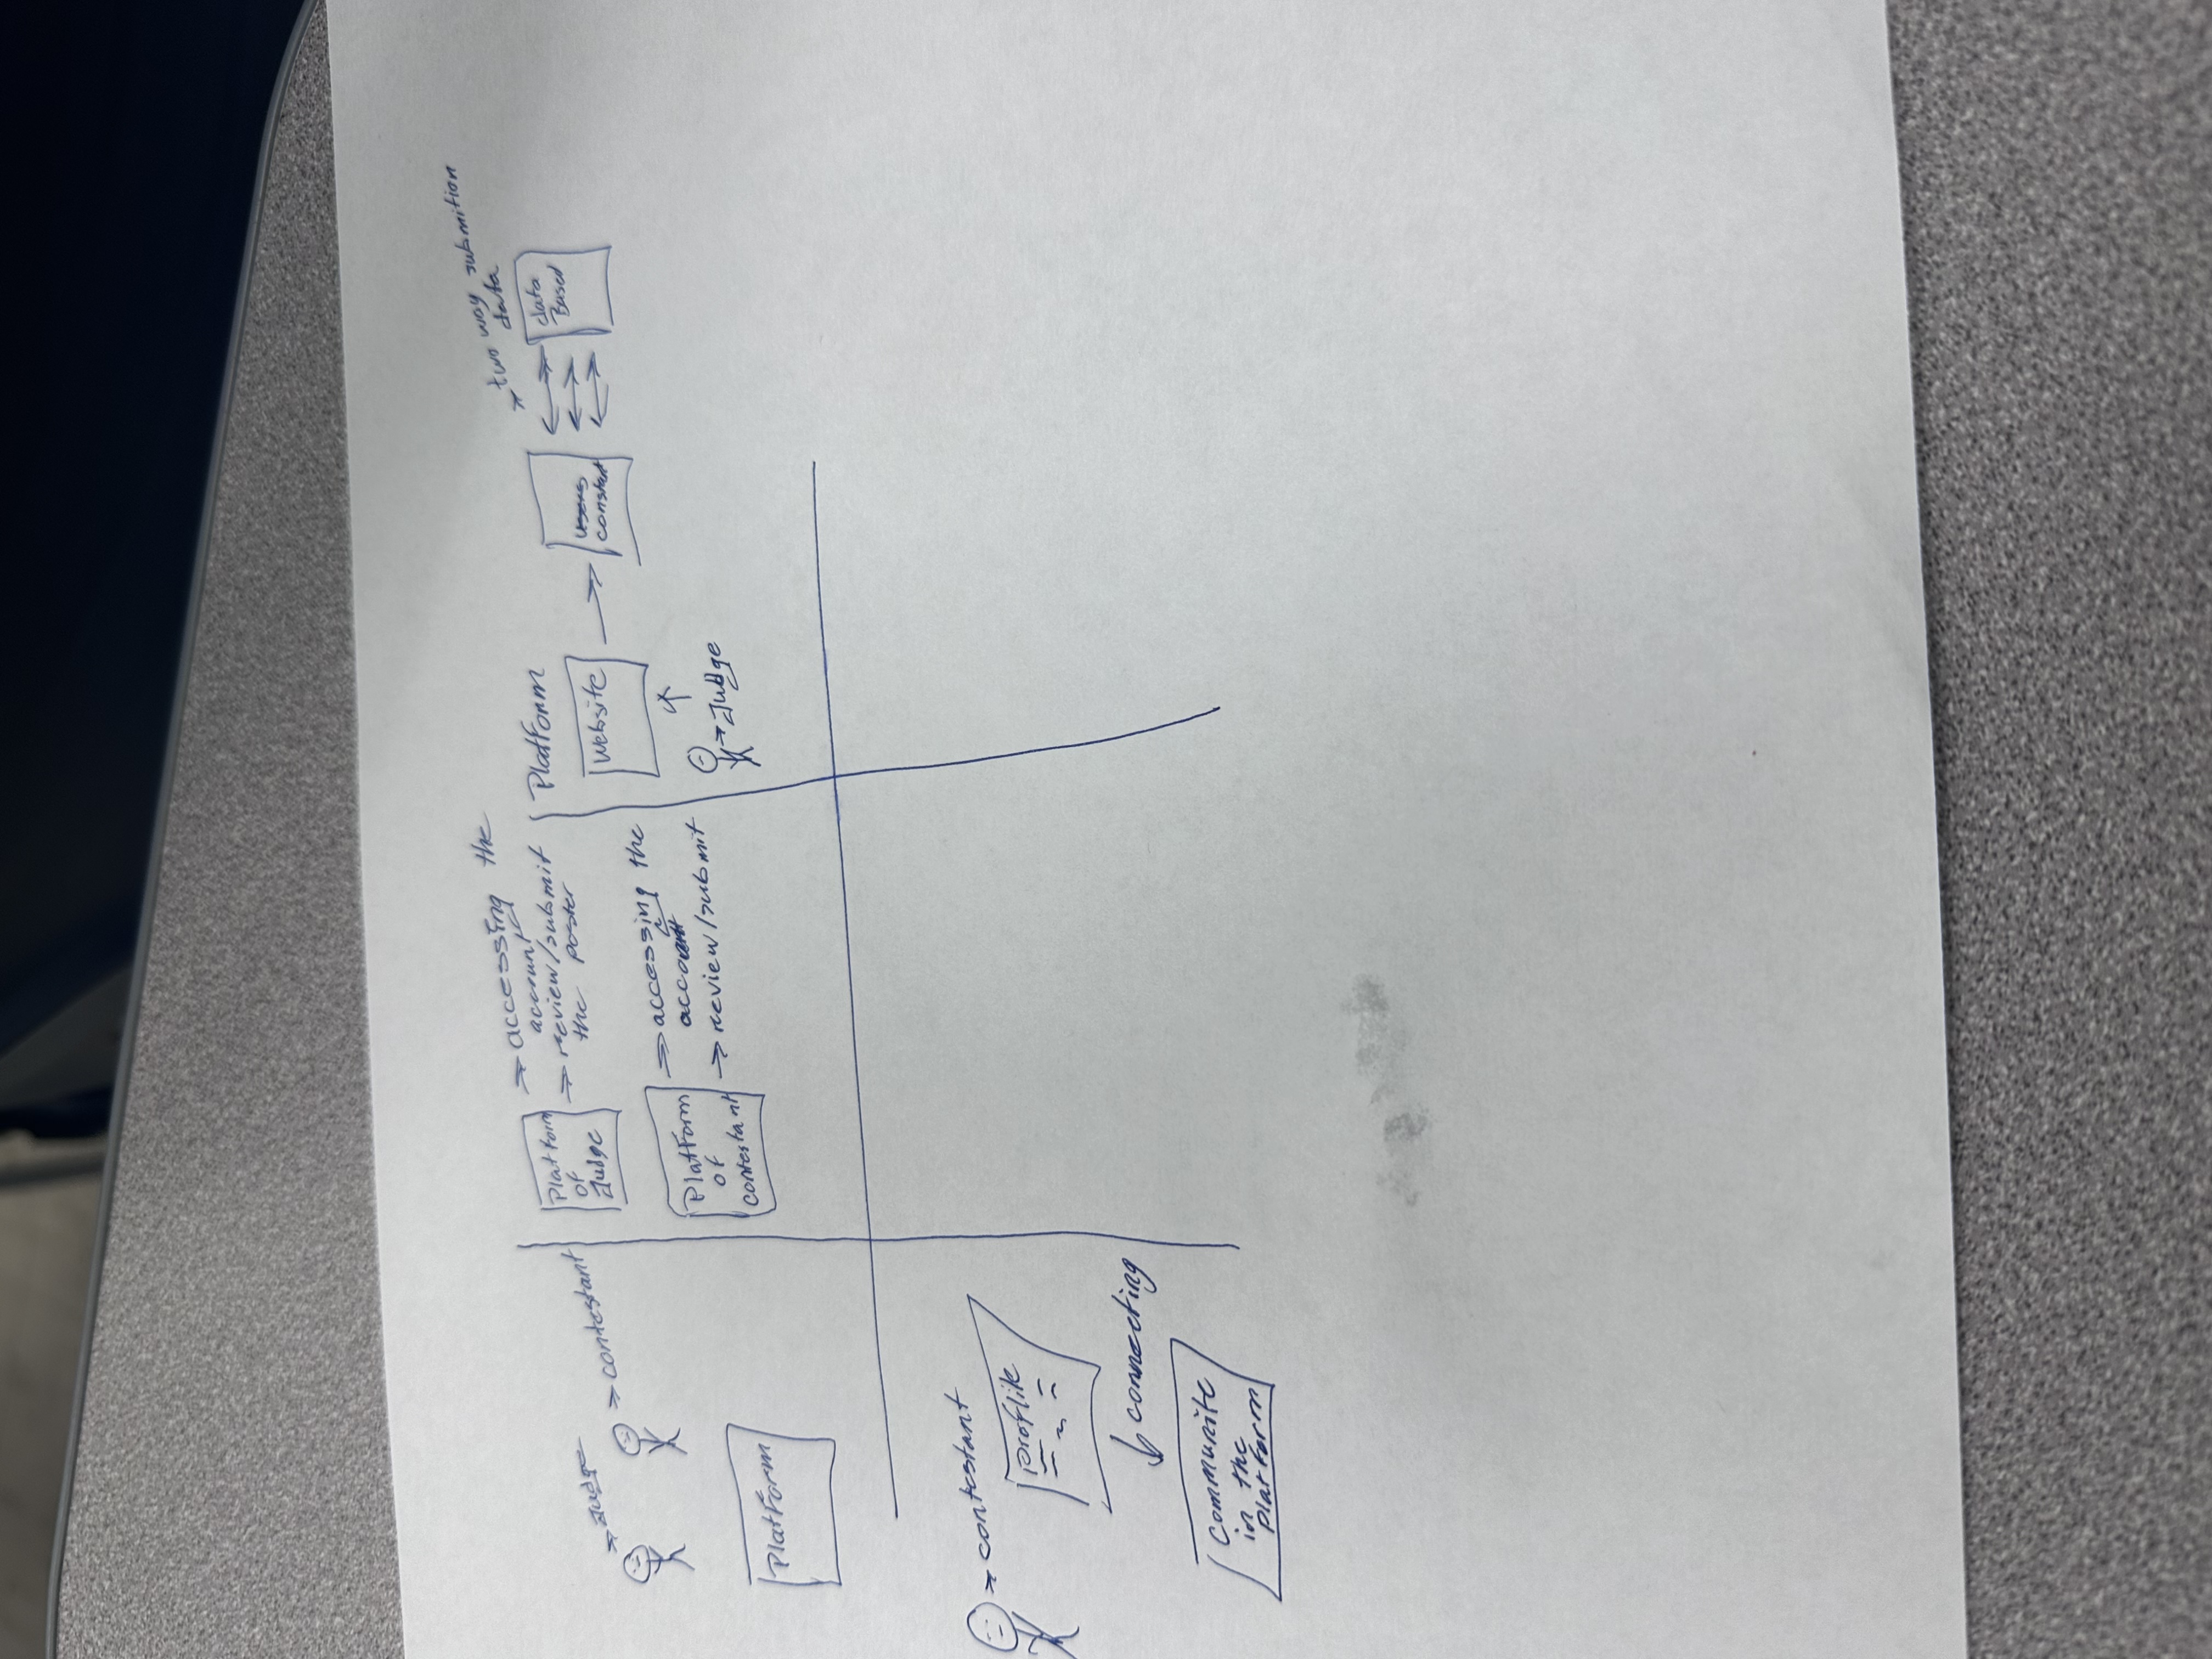 Judge
contestant
Platform
Platform
of
Judge
accessing the
account
review/submit
the poster
Platform
of
contestant
accessing the
account
review/submit
Platform
Website
Judge
constant
two way submition
data
data
Based
contestant
Proflile
connecting
Communite
in the
Platform